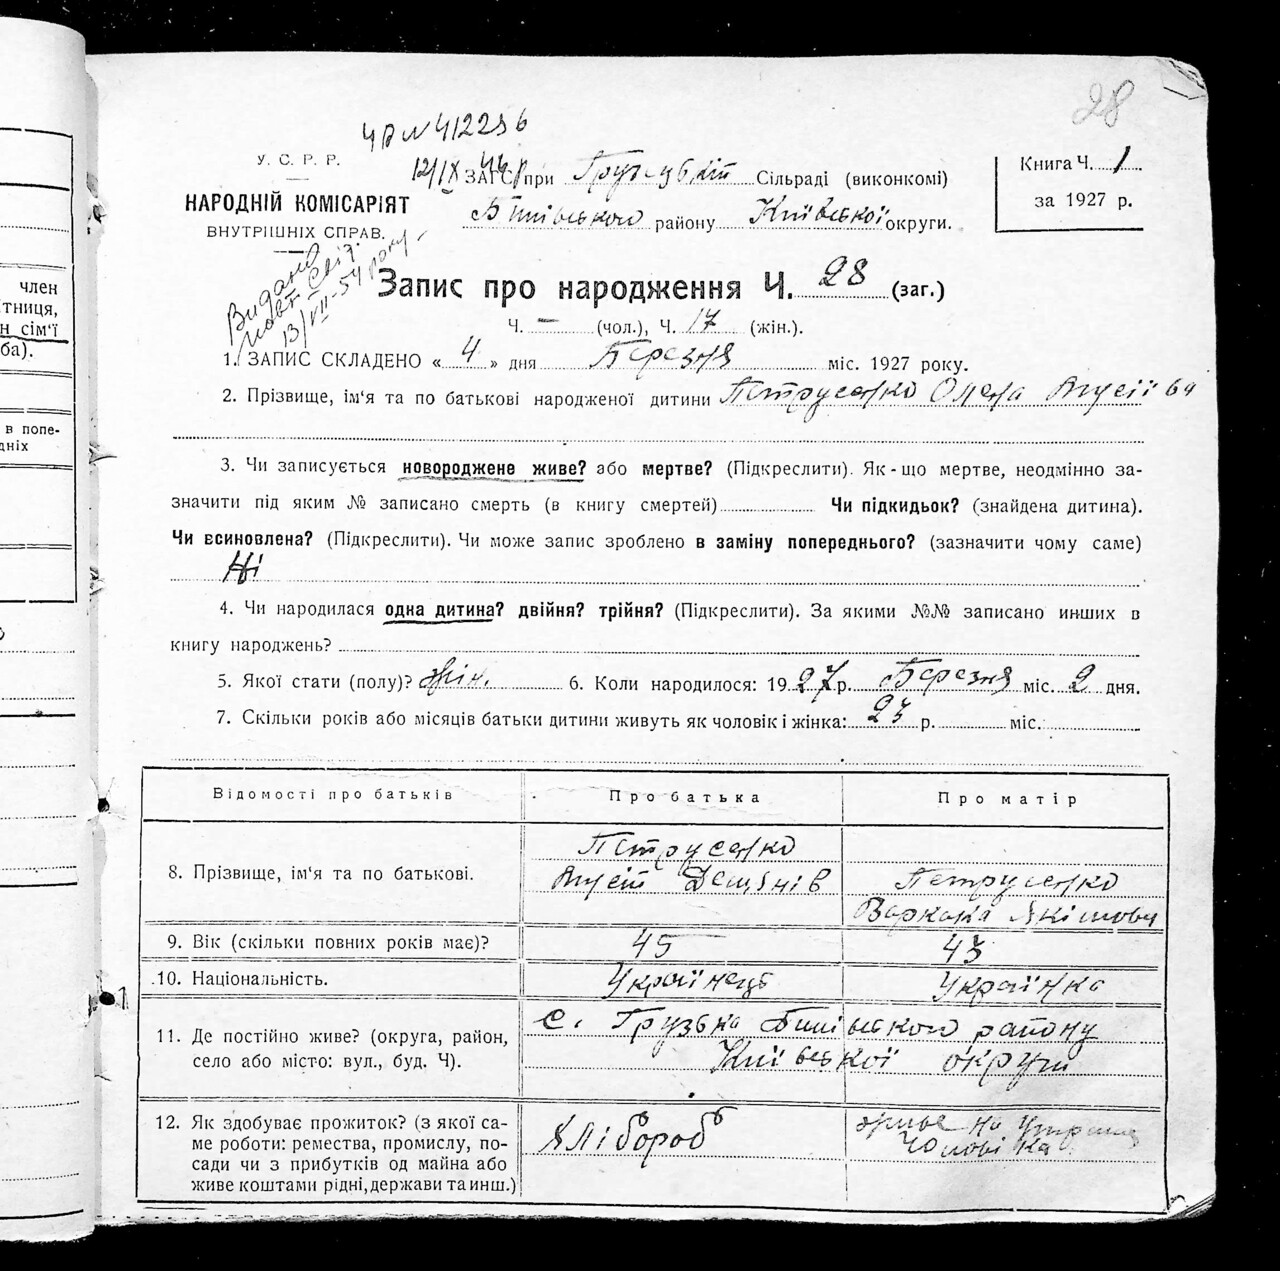 28
ЧД № 412256
У. С. Р. Р.
НАРОДНІЙ КОМІСАРІЯТ
ВНУТРІШНІХ СПРАВ.
12/IX ЗАГС при Грузський Сільраді (виконкомі)
Бишівського району Київської округи.
Книга Ч. 1
за 1927 р.
Видано
повт. свід.
13/VII-54 року
Запис про народження Ч. 28 (заг.)
Ч. — (чол.), Ч. 17 (жін.).
1. ЗАПИС СКЛАДЕНО « 4 » дня Березня міс. 1927 року.
2. Прізвище, ім'я та по батькові народженої дитини Петрусенко Олена
3. Чи записується новороджене живе? або мертве? (Підкреслити). Як-що мертве, неодмінно за-
значити під яким № записано смерть (в книгу смертей) Чи підкидьок? (знайдена дитина).
Чи всиновлена? (Підкреслити). Чи може запис зроблено в заміну попереднього? (зазначити чому саме)
Ні
4. Чи народилася одна дитина? двійня? трійня? (Підкреслити). За якими №№ записано инших в
книгу народжень?
5. Якої стати (полу)? жін. 6. Коли народилося: 1927 р. Березня міс. 2 дня.
7. Скільки років або місяців батьки дитини живуть як чоловік і жінка: 23 р. міс.
Відомості про батьків Про батька Про матір
8. Прізвище, ім'я та по батькові. Петрусенко Петрусенко
Варвара Якимовна
9. Вік (скільки повних років має)? 45 43
10. Національність. Українець Українка
11. Де постійно живе? (округа, район, с. Грузька Бишівського району
село або місто: вул., буд. Ч). Київської округи
12. Як здобуває прожиток? (з якої са-
ме роботи: ремества, промислу, по-
сади чи з прибутків од майна або
живе коштами рідні, держави та инш.)
Хлібороб
живе на утрим
Чоловіка
член
тниця,
н сім'ї
ба).
в попе-
дніх